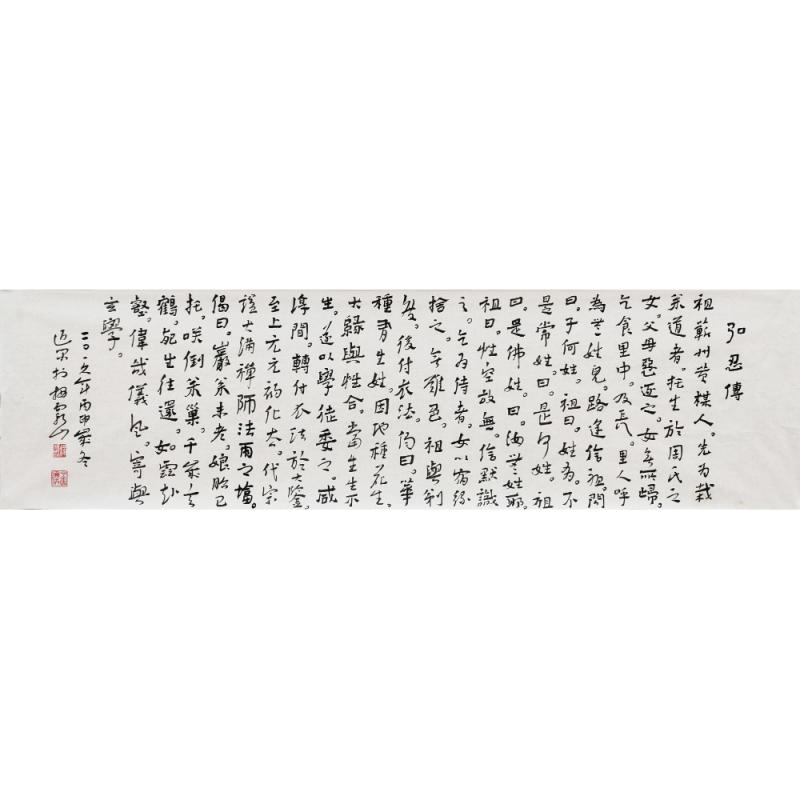 弘忍傳
祖蘄州黄梅人。先为栽
松道者。托生於周氏之
女。父母惡逐之。女無所歸。
乞食里中。及長。里人呼
為無姓兒。路逢信祖。問
曰。子何姓。祖曰。姓为。不
是常姓。曰。是何姓。祖
曰。是佛姓。曰。汝無姓耶。
祖曰。性空故無。信默識
之。乞为侍者。女以宿緣
捨之。無難色。祖與剃
度。後付衣法。偈曰。華
種有生性。因地種花生。
大緣與性合。當生生不
生。遂以學徒委之。咸
淳間。轉付衣法於大鑒。
至上元元祀化去。代宗
諡大滿禪師法雨之塔。
偈曰。巖松未老。娘胎已
托。笑倒松巢。千歲玄
鶴。死生往還。如雲
壑。偉哉儀風。寄與
玄學。
二〇一六年丙申歲冬